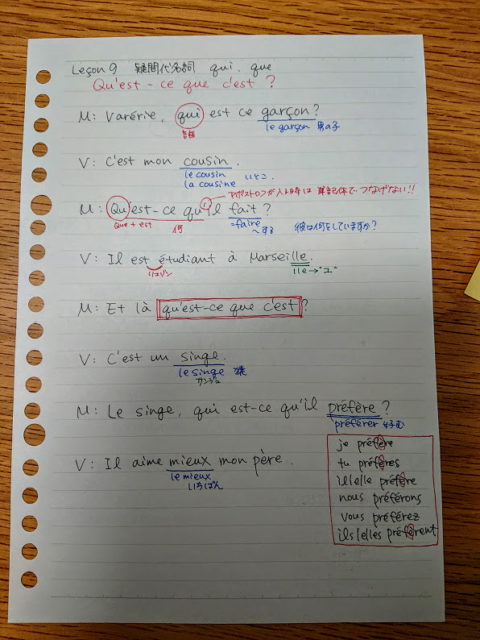 Leçon 9 疑問代名詞 qui, que
Qu'est-ce que c'est ?
M: Varérie, qui est ce garçon?
le garçon 男の子
V: C'est mon cousin.
le cousin いとこ
la cousine
アポストロフが入る時は 筆記体でつなげない!!
M: Qu'est-ce qu'il fait?
que + est 何 =faire 〜する 彼は何をしていますか?
V: Il est étudiant à Marseille.
リエゾン lle→"ユ"
M: Et là qu'est-ce que c'est?
V: C'est un singe.
le singe 猿
サンジュ
M: Le singe, qui est-ce qu'il préfère ?
préférer 好む
V: Il aime mieux mon père.
le mieux
いちばん
je préfère
tu préfères
il/elle préfère
nous préférons
vous préférez
ils/elles préfèrent